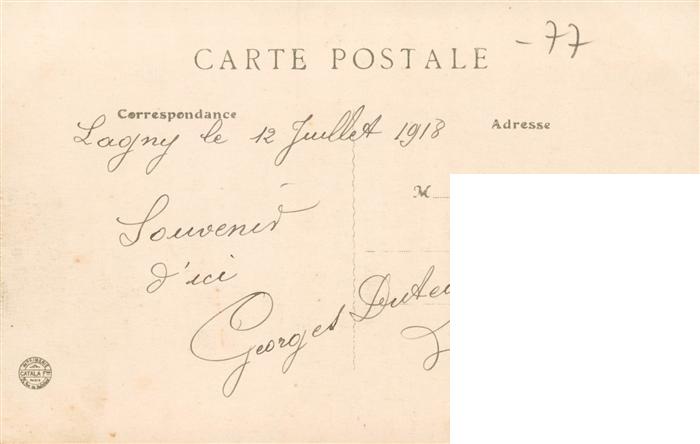 -77
CARTE POSTALE
Correspondance
Adresse
Lagny le 12 Juillet 1918
M
Souvenir
d'ici
Georges
CATALA